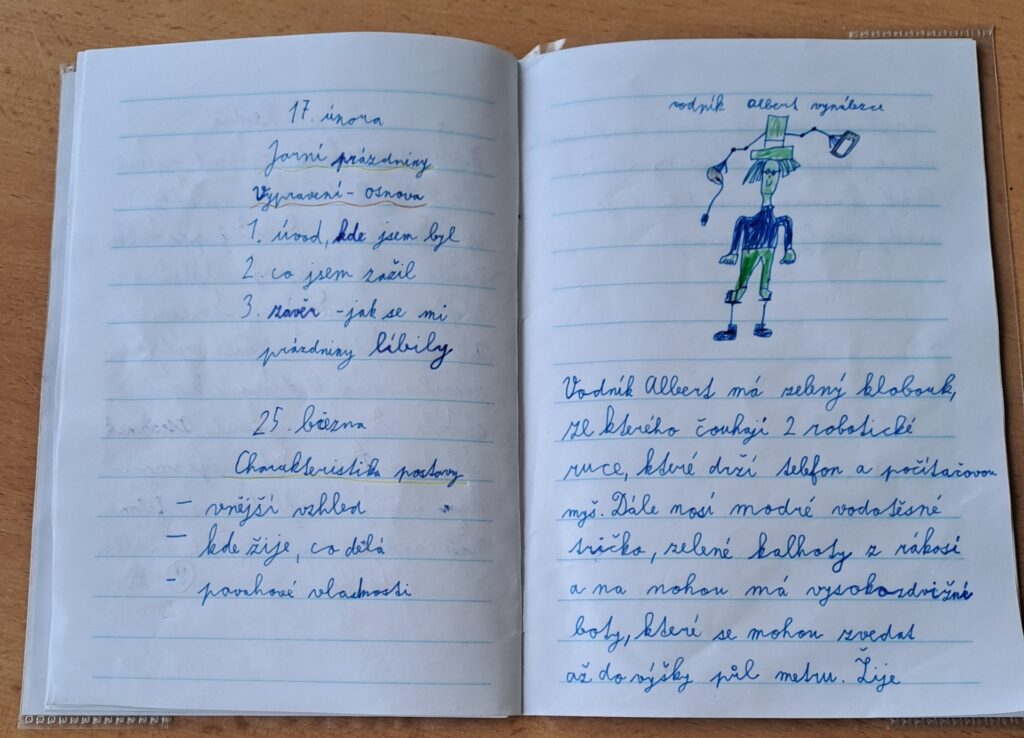 17. února
Jarní prázdniny
Vypravení - osnova
1. úvod, kde jsem byl
2. co jsem zažil
3. závěr - jak se mi
prázdniny líbily
25. března
Charakteristika postavy
- vnější vzhled
- kde žije, co dělá
- povahové vlastnosti
vodník albert vynálezce
Vodník Albert má zelený klobouk,
ze kterého čouhají 2 robotické
ruce, které drží telefon a počítačovou
myš. Dále nosí modré vodotěsné
tričko, zelené kalhoty z rákosí
a na nohou má vysokozdvižné
boty, které se mohou zvedat
až do výšky půl metru. Žije